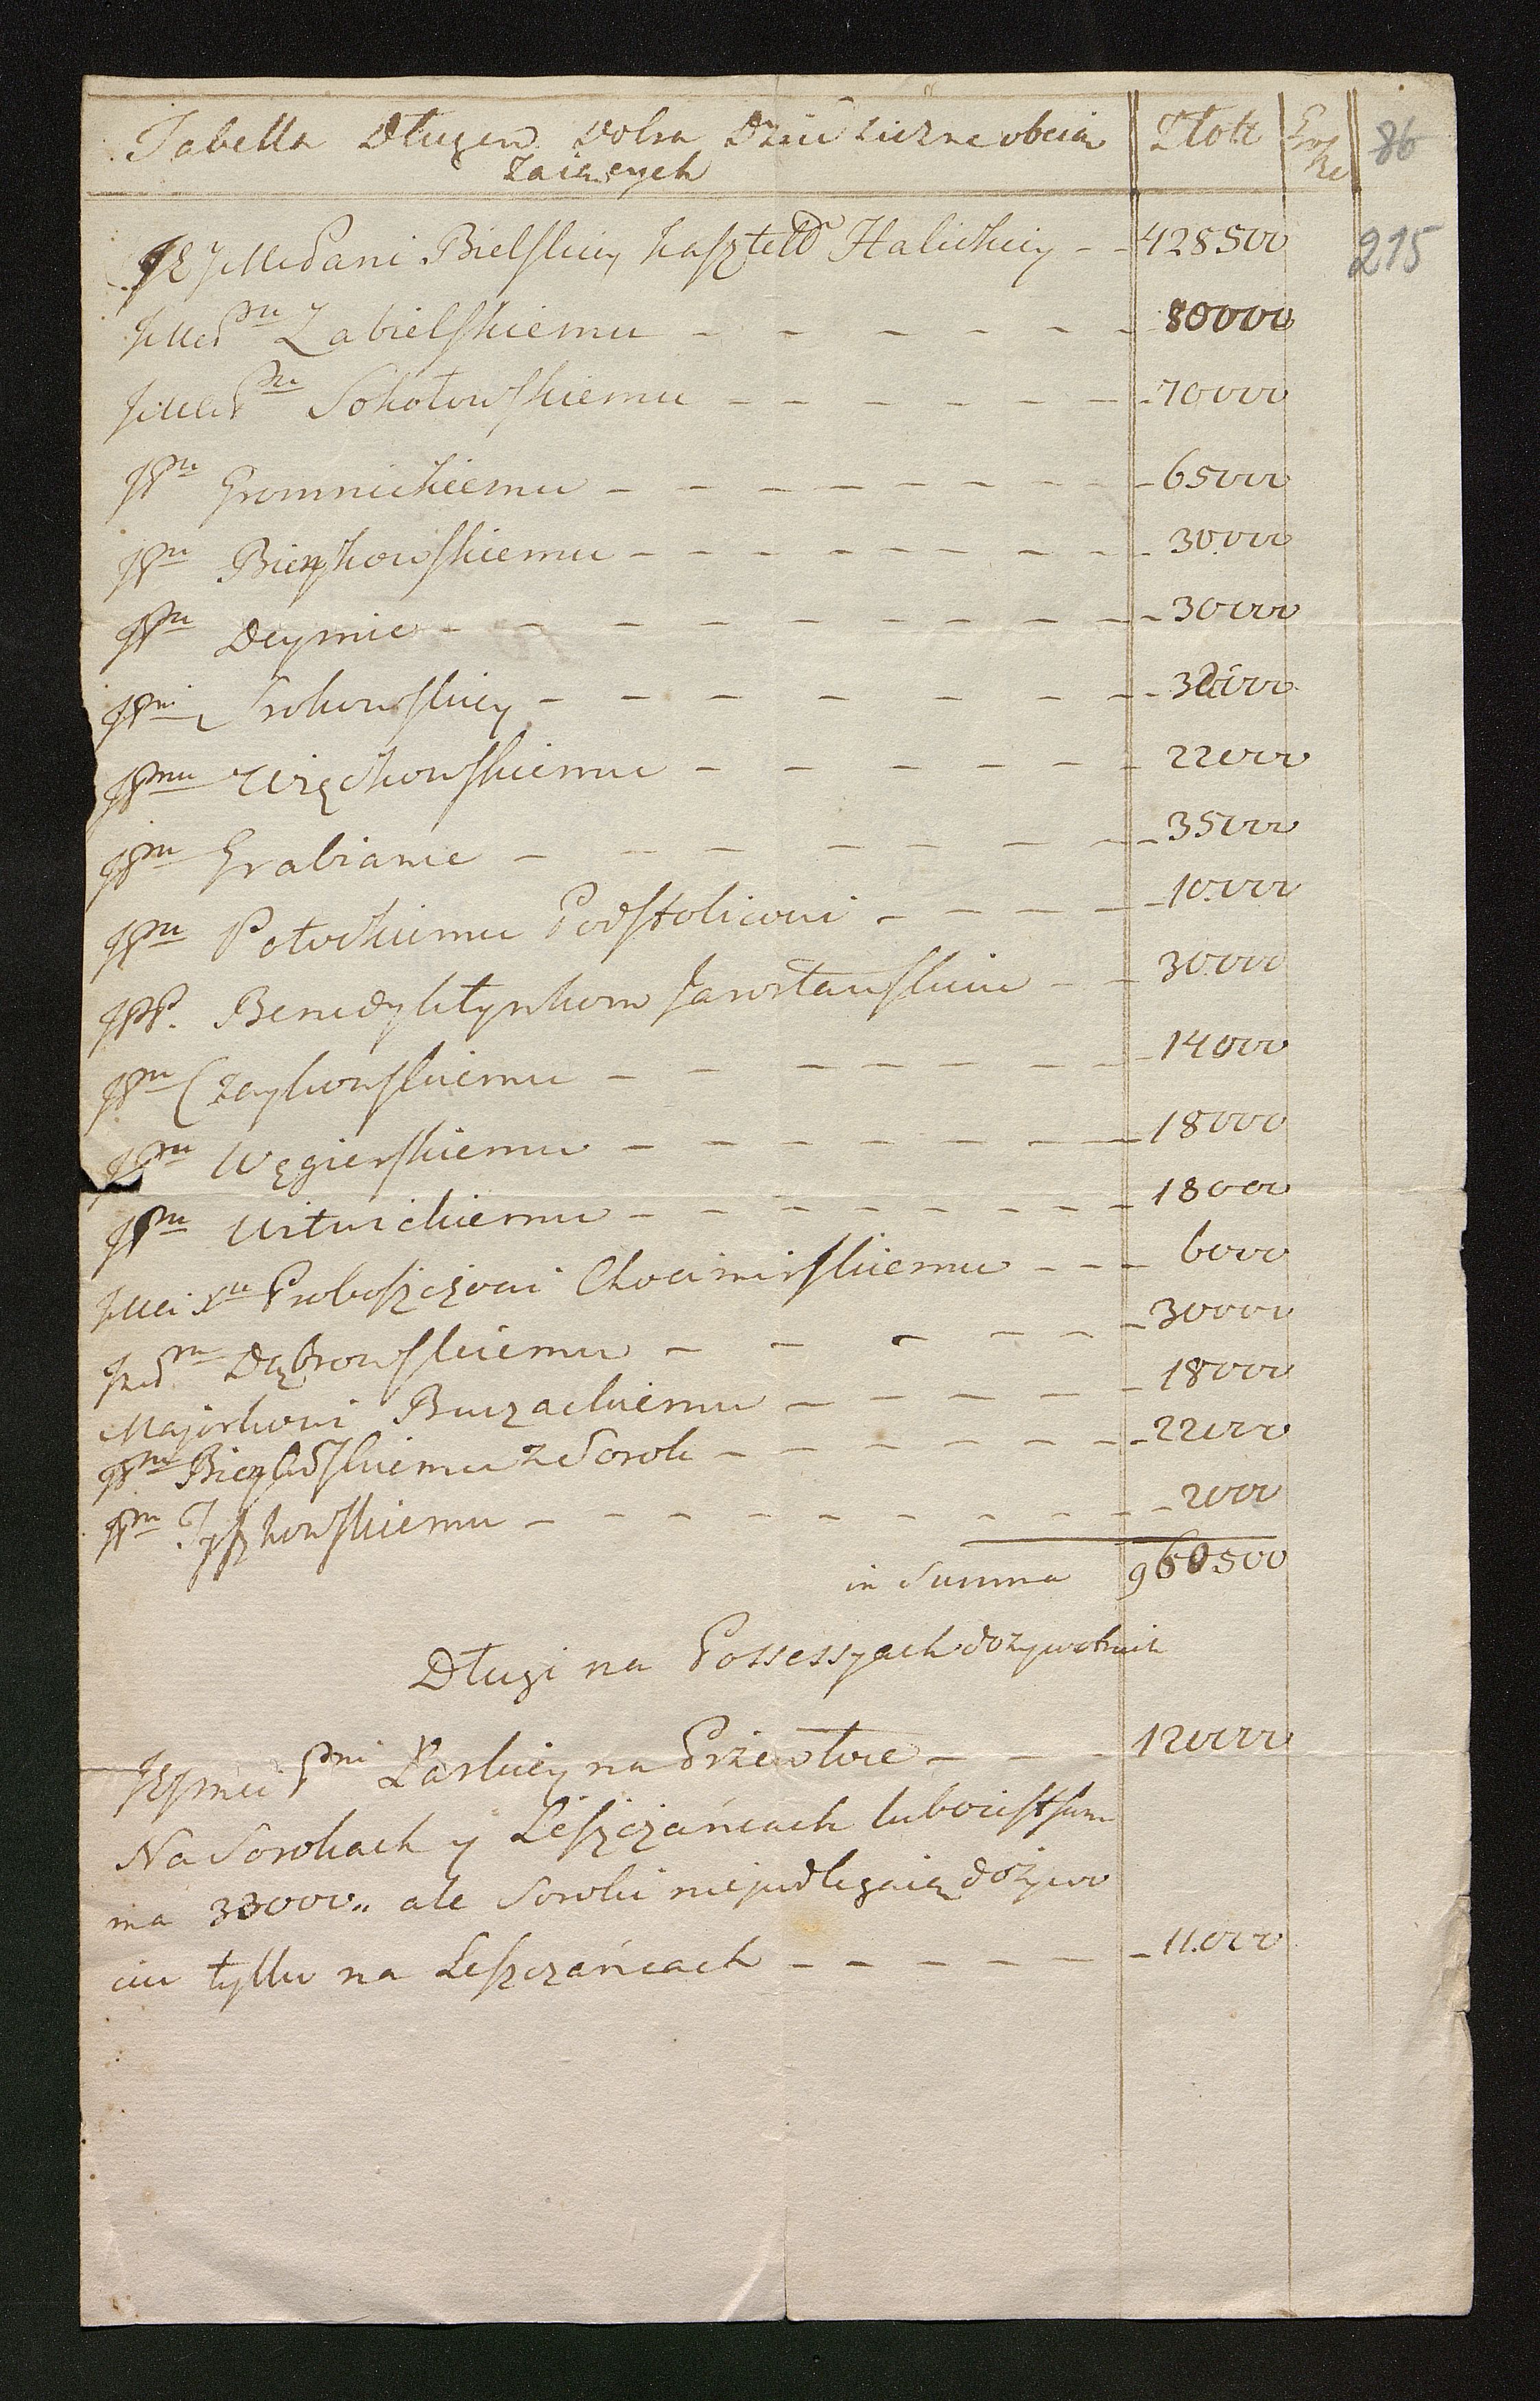 Tabella Długow Dobra Dziedziczne obcią Złote Gro 86
żaiących sze
JEJMci Pani Bielskiey Kasztelo Halickiey - - 428500 215
JMci Pnu Zabielskiemu - - - - - - - 80000
JMCi Pnu Sokołowskiemu - - - - - - - 70000
JPnu Gromnickiemu - - - - - - - - - 65000
JPnu Bieńkowskiemu - - - - - - - - - 30000
JPnu Deymie - - - - - - - - - - 30000
JPni Srokowskiey - - - - - - - - 32000
JPnu Więckowskiemu - - - - - - 22000
JPnu Grabiance - - - - - - - - 35000
JPnu Potockiemu Podstolicowi - - - - - 10.000
JPP. Benedyktynkom Jarosławskim - - 30.000
JPnu Czaykowskiemu - - - - - - - 14000
JPnu Węgierskiemu - - - - - - - 18000
JPnu Witwickiemu - - - - - - - - 18000
JMci Xu Proboszczowi Chocimirskiemu - - - 6000
JPnu Dąbrowskiemu - - - - - - 30000
Majorkowi Buczackiemu - - - - - - 18000
JPnu Bieńkowskiemu z Sorok - - - - - - - 22000
JPnu Tyszkowskiemu - - - - - - - - - - 2000
in Summa 960500
Długi na Possessyach dożywotnich
JEJmci Pni Karskiey na Przewłoce - - - 12000
Na Sorokach y Leszczańcach lubo iest sum
ma 33000,, ale Soroki niepodlegaią dożywo
ciu tylko na Leszczańcach - - - - - - 11.000